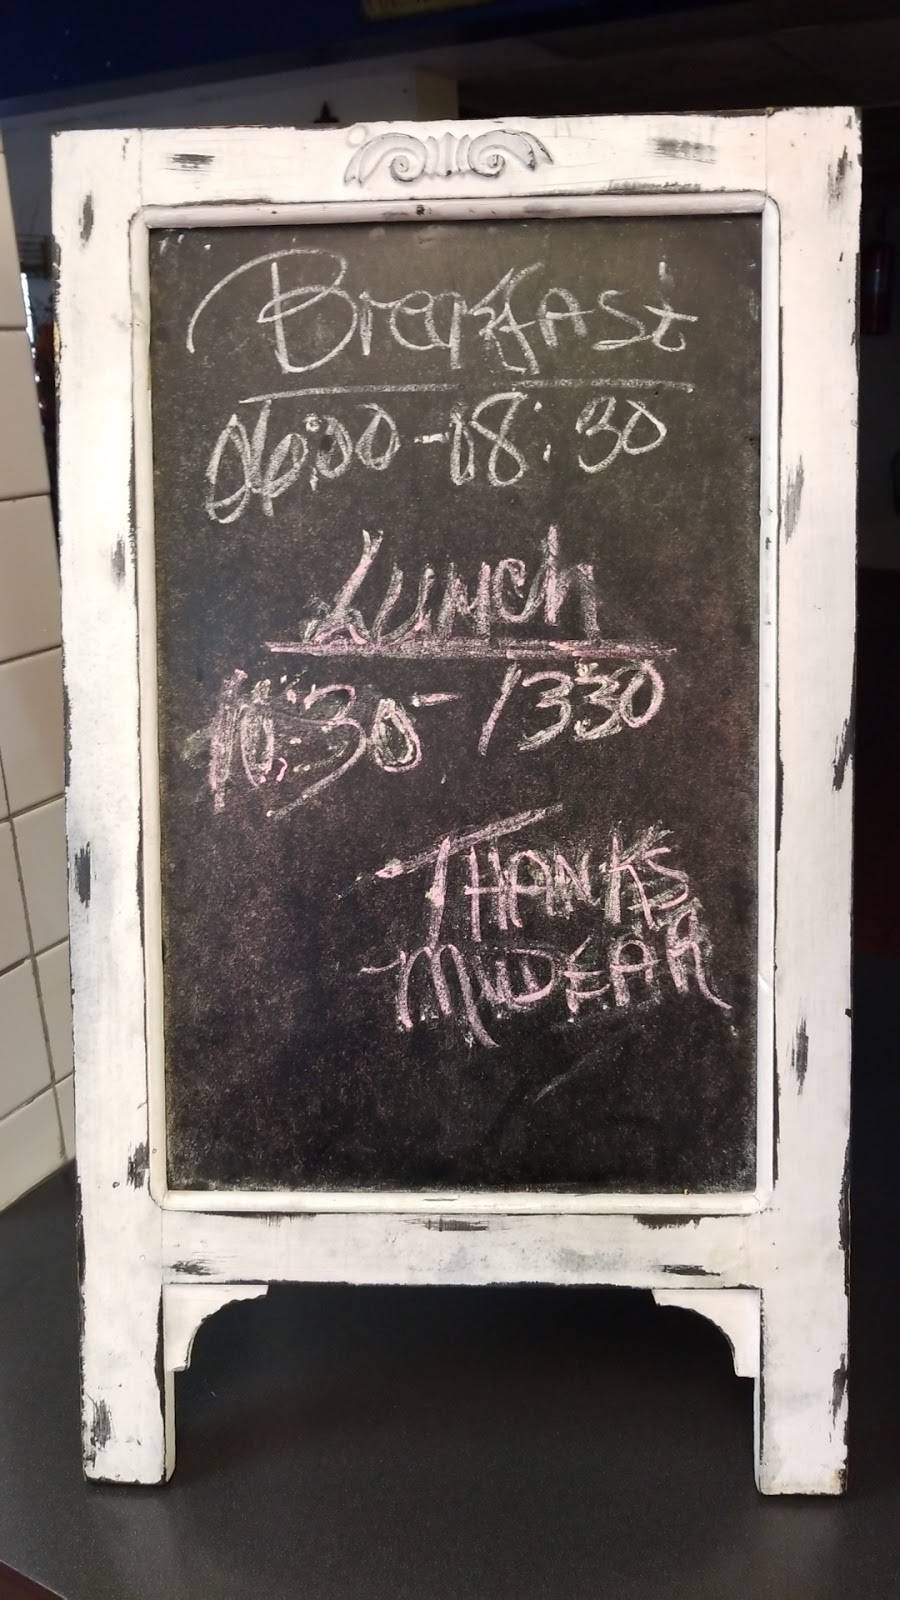 Breakfast
06:00-08:30
Lunch
10:30-1330
THANKS
MUDEAR